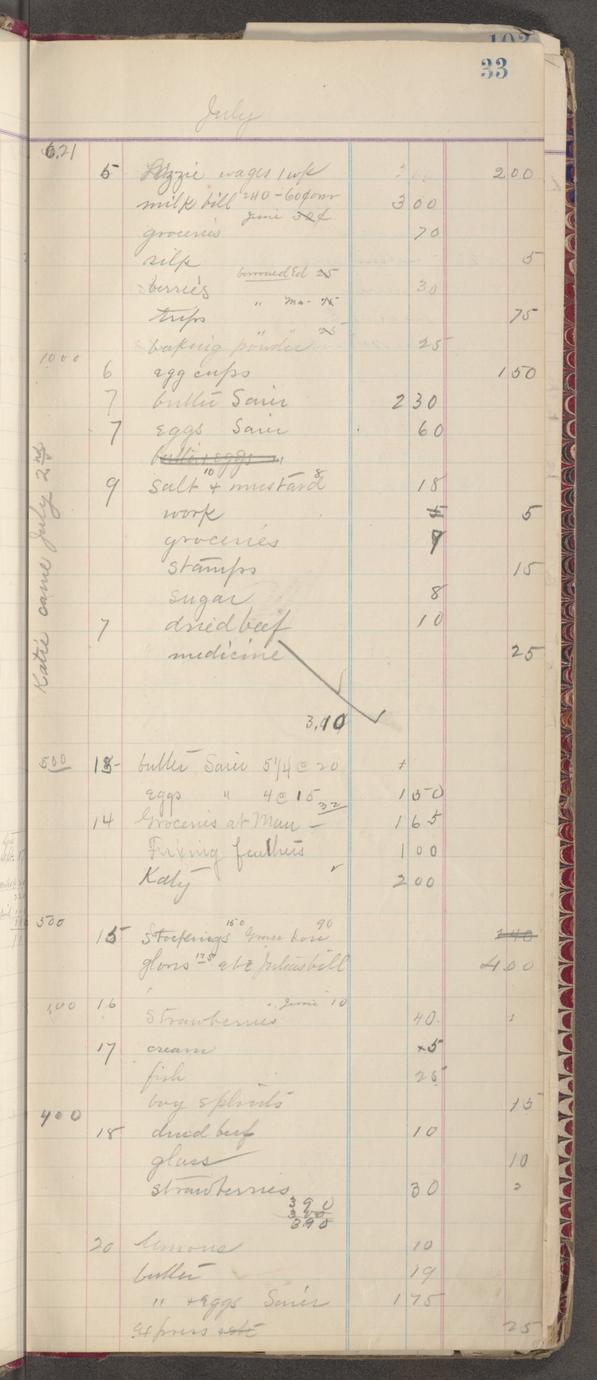 103
33
July
6.21
5 Lizzie wages 1 wk 200
milk bill 240 - 60¢ 300
groceries 70
silk 5
borrowed Ed 25
berries 30
" Ma- 75
trips 75
25
baking powder 25
1000
6 egg cups 150
7 butter Sarir 230
7 eggs Sarir 60
butter + eggs "
9 salt 10 + mustard 8 18
work 5
groceries 9
stamps 15
sugar 8
7 dried beef 10
medicine 25
Katie came July 2nd
3.10
500 13 butter Sarir 5 1/4 @ 20
eggs " 4 @ 15 150
32
14 Groceries at Man - 165
Fixing feathers 100
Katy 200
500
15 Stockings 150 90 240
glovs 175 etc Julias bill 400
16 10
Strawberries 40
17 cream 5
fish 25
boy splints 15
400
18 dried beef 10
glass 10
strawberries 30
390
390
20 lemons 10
butter 19
" + eggs Sarir 175
express 25